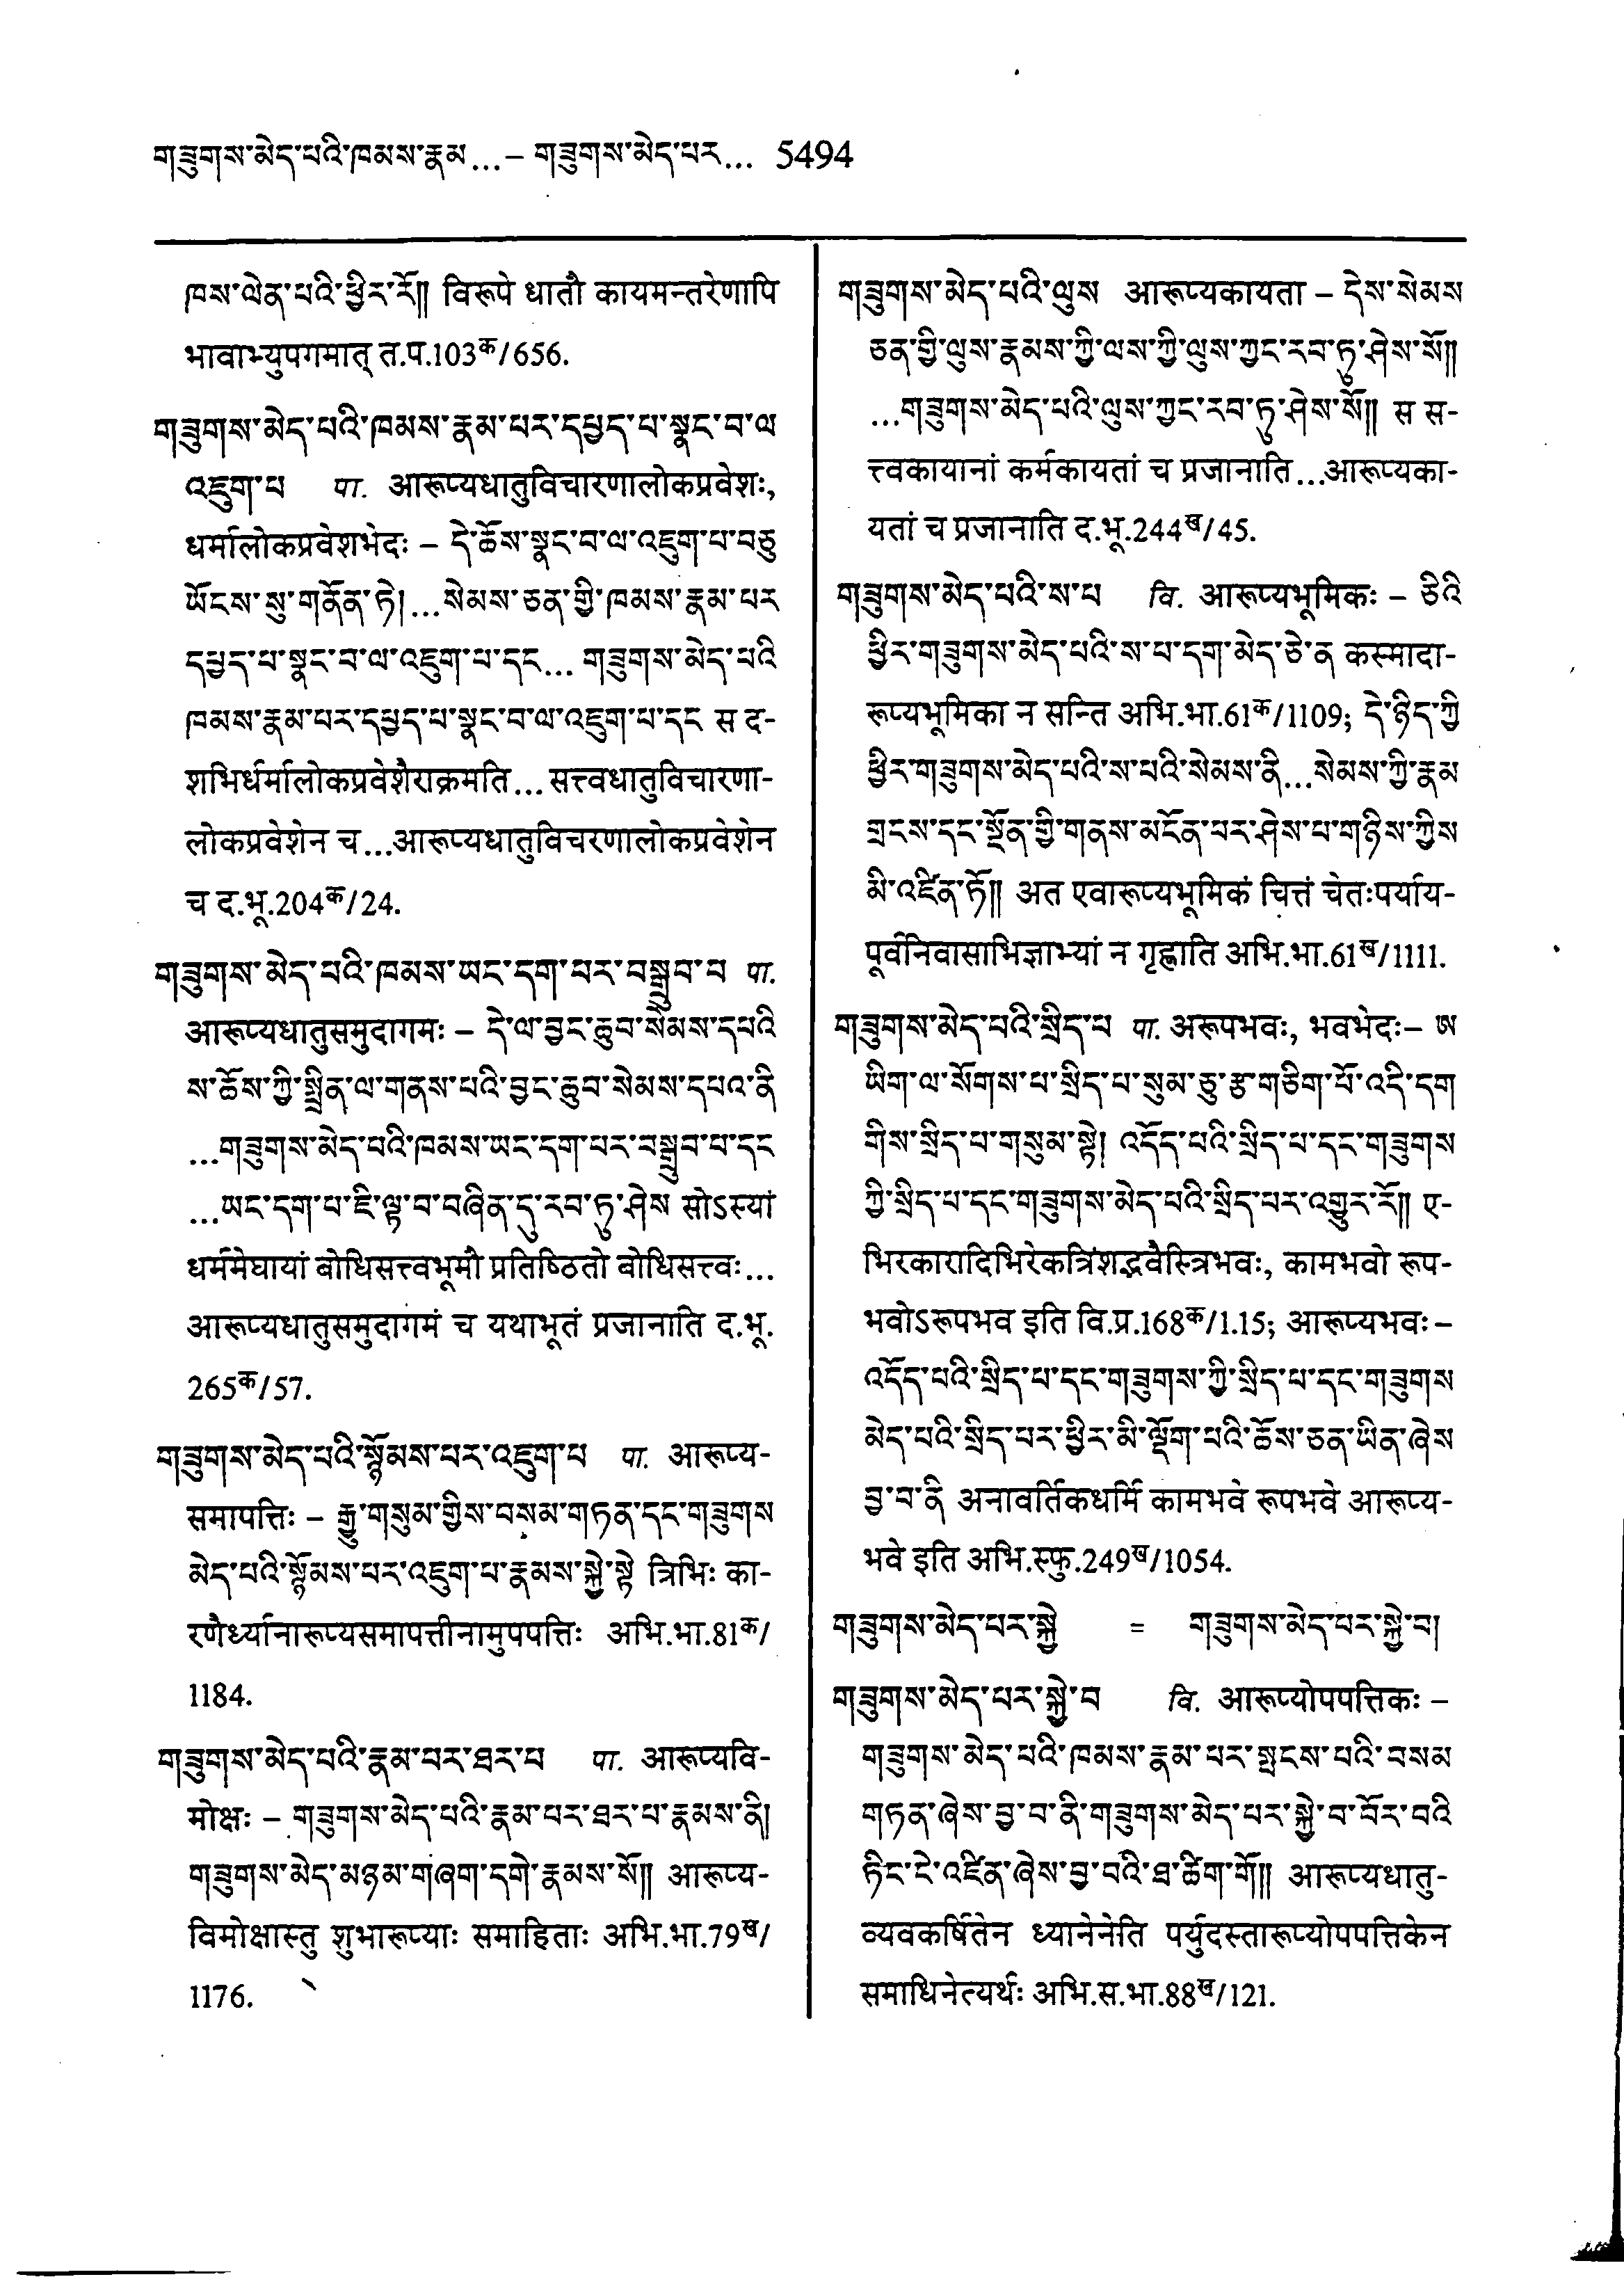 གཟུགས་མེད་པའི་ཁམས་རྣམ...– གཟུགས་མེད་པར... 5494
ཁས་ལེན་པའི་ཕྱིར་རོ།། विरूपे धातौ कायमन्तरेणापि
भावाभ्युपगमात् त.प.103क/656.
གཟུགས་མེད་པའི་ཁམས་རྣམ་པར་དཔྱད་པ་སྣང་བ་ལ
འཇུག་པ पा. आरूप्यधातुविचारणालोकप्रवेशः,
धर्मालोकप्रवेशभेदः – དེ་ཆོས་སྣང་བ་ལ་འཇུག་པ་བཅུ
ཡོངས་སུ་གནོན་ཏེ།...སེམས་ཅན་གྱི་ཁམས་རྣམ་པར
དཔྱད་པ་སྣང་བ་ལ་འཇུག་པ་དང... གཟུགས་མེད་པའི
ཁམས་རྣམ་པར་དཔྱད་པ་སྣང་བ་ལ་འཇུག་པ་དང स द-
शभिर्धर्मालोकप्रवेशैराक्रमति... सत्त्वधातुविचारणा-
लोकप्रवेशेन च...आरूप्यधातुविचरणालोकप्रवेशेन
च द.भू.204क/24.
གཟུགས་མེད་པའི་ཁམས་ཡང་དག་པར་བསྒྲུབ་པ पा.
आरूप्यधातुसमुदागमः – དེ་ལ་བྱང་ཆུབ་སེམས་དཔའི
ས་ཆོས་ཀྱི་སྤྲིན་ལ་གནས་པའི་བྱང་ཆུབ་སེམས་དཔའ་ནི
...གཟུགས་མེད་པའི་ཁམས་ཡང་དག་པར་བསྒྲུབ་པ་དང
...ཡང་དག་པ་ཇི་ལྟ་བ་བཞིན་དུ་རབ་ཏུ་ཤེས सोऽस्यां
धर्ममेघायां बोधिसत्त्वभूमौ प्रतिष्ठितो बोधिसत्त्वः...
आरूप्यधातुसमुदागमं च यथाभूतं प्रजानाति द.भू.
265क/57.
གཟུགས་མེད་པའི་སྙོམས་པར་འཇུག་པ पा. आरूप्य-
समापत्तिः – རྒྱུ་གསུམ་གྱིས་བསམ་གཏན་དང་གཟུགས
མེད་པའི་སྙོམས་པར་འཇུག་པ་རྣམས་སྐྱེ་སྟེ त्रिभिः का-
रणैर्ध्यानारूप्यसमापत्तीनामुपपत्तिः अभि.भा.81क/
1184.
གཟུགས་མེད་པའི་རྣམ་པར་ཐར་པ पा. आरूप्यवि-
मोक्षः – གཟུགས་མེད་པའི་རྣམ་པར་ཐར་པ་རྣམས་ནི།
གཟུགས་མེད་མཉམ་གཞག་དགེ་རྣམས་སོ།། आरूप्य-
विमोक्षास्तु शुभारूप्याः समाहिताः अभि.भा.79ख/
1176.
གཟུགས་མེད་པའི་ལུས आरूप्यकायता – དེས་སེམས
ཅན་གྱི་ལུས་རྣམས་ཀྱི་ལས་ཀྱི་ལུས་ཀྱང་རབ་ཏུ་ཤེས་སོ།།
...གཟུགས་མེད་པའི་ལུས་ཀྱང་རབ་ཏུ་ཤེས་སོ།། स स-
त्त्वकायानां कर्मकायतां च प्रजानाति...आरूप्यका-
यतां च प्रजानाति द.भू.244ख/45.
གཟུགས་མེད་པའི་ས་པ वि. आरूप्यभूमिकः – ཅིའི
ཕྱིར་གཟུགས་མེད་པའི་ས་པ་དག་མེད་ཅེ་ན कस्मादा-
रूप्यभूमिका न सन्ति अभि.भा.61क/1109; དེ་ཉིད་ཀྱི
ཕྱིར་གཟུགས་མེད་པའི་ས་པའི་སེམས་ནི...སེམས་ཀྱི་རྣམ
གྲངས་དང་སྔོན་གྱི་གནས་མངོན་པར་ཤེས་པ་གཉིས་ཀྱིས
མི་འཛིན་ཏོ།། अत एवारूप्यभूमिकं चित्तं चेतःपर्याय-
पूर्वनिवासाभिज्ञाभ्यां न गृह्णाति अभि.भा.61ख/1111.
གཟུགས་མེད་པའི་སྲིད་པ पा. अरूपभवः, भवभेदः– ཨ
ཡིག་ལ་སོགས་པ་སྲིད་པ་སུམ་ཅུ་རྩ་གཅིག་པོ་འདི་དག
གིས་སྲིད་པ་གསུམ་སྟེ། འདོད་པའི་སྲིད་པ་དང་གཟུགས
ཀྱི་སྲིད་པ་དང་གཟུགས་མེད་པའི་སྲིད་པར་འགྱུར་རོ།། ए-
भिरकारादिभिरेकत्रिंशद्भवैस्त्रिभवः, कामभवो रूप-
भवोऽरूपभव इति वि.प्र.168क/1.15; आरूप्यभवः –
འདོད་པའི་སྲིད་པ་དང་གཟུགས་ཀྱི་སྲིད་པ་དང་གཟུགས
མེད་པའི་སྲིད་པར་ཕྱིར་མི་ལྡོག་པའི་ཆོས་ཅན་ཡིན་ཞེས
བྱ་བ་ནི अनावर्तिकधर्मि कामभवे रूपभवे आरूप्य-
भवे इति अभि.स्फु.249ख/1054.
གཟུགས་མེད་པར་སྐྱེ = གཟུགས་མེད་པར་སྐྱེ་བ།
གཟུགས་མེད་པར་སྐྱེ་བ वि. आरूप्योपपत्तिकः –
གཟུགས་མེད་པའི་ཁམས་རྣམ་པར་སྤངས་པའི་བསམ
གཏན་ཞེས་བྱ་བ་ནི་གཟུགས་མེད་པར་སྐྱེ་བ་བོར་བའི
ཏིང་ངེ་འཛིན་ཞེས་བྱ་བའི་ཐ་ཚིག་གོ།། आरूप्यधातु-
व्यवकर्षितेन ध्यानेनेति पर्युदस्तारूप्योपपत्तिकेन
समाधिनेत्यर्थः अभि.स.भा.88ख/121.